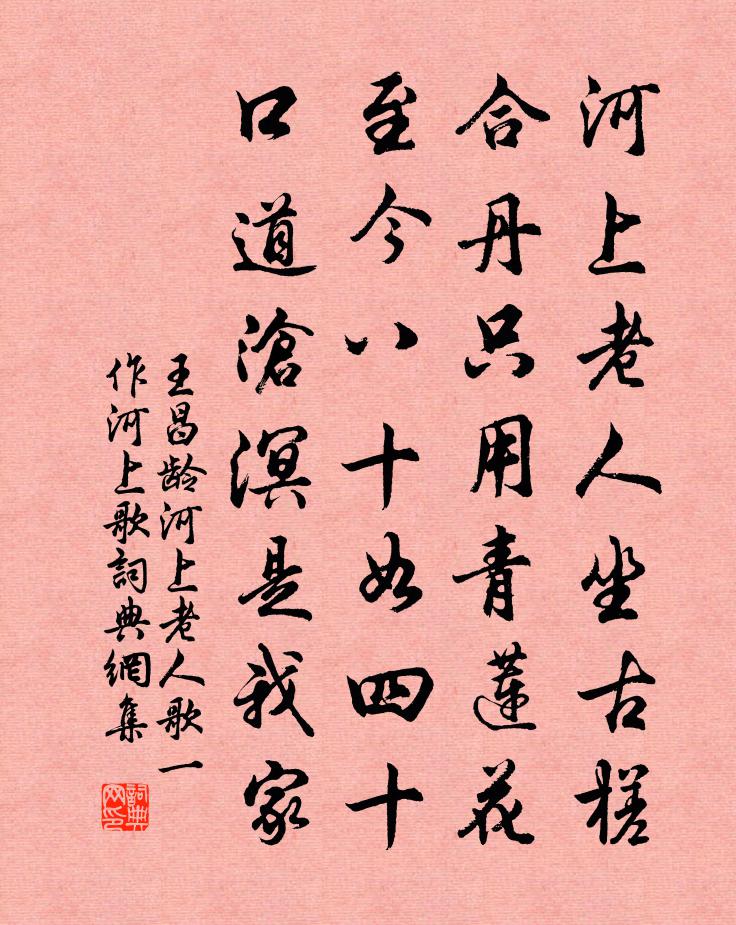 河上老人坐古槎
合丹只用青蓮花
至今八十如四十
口道滄溟是我家
王昌齡河上老人歌一
作河上歌詞典網集
詞典网印